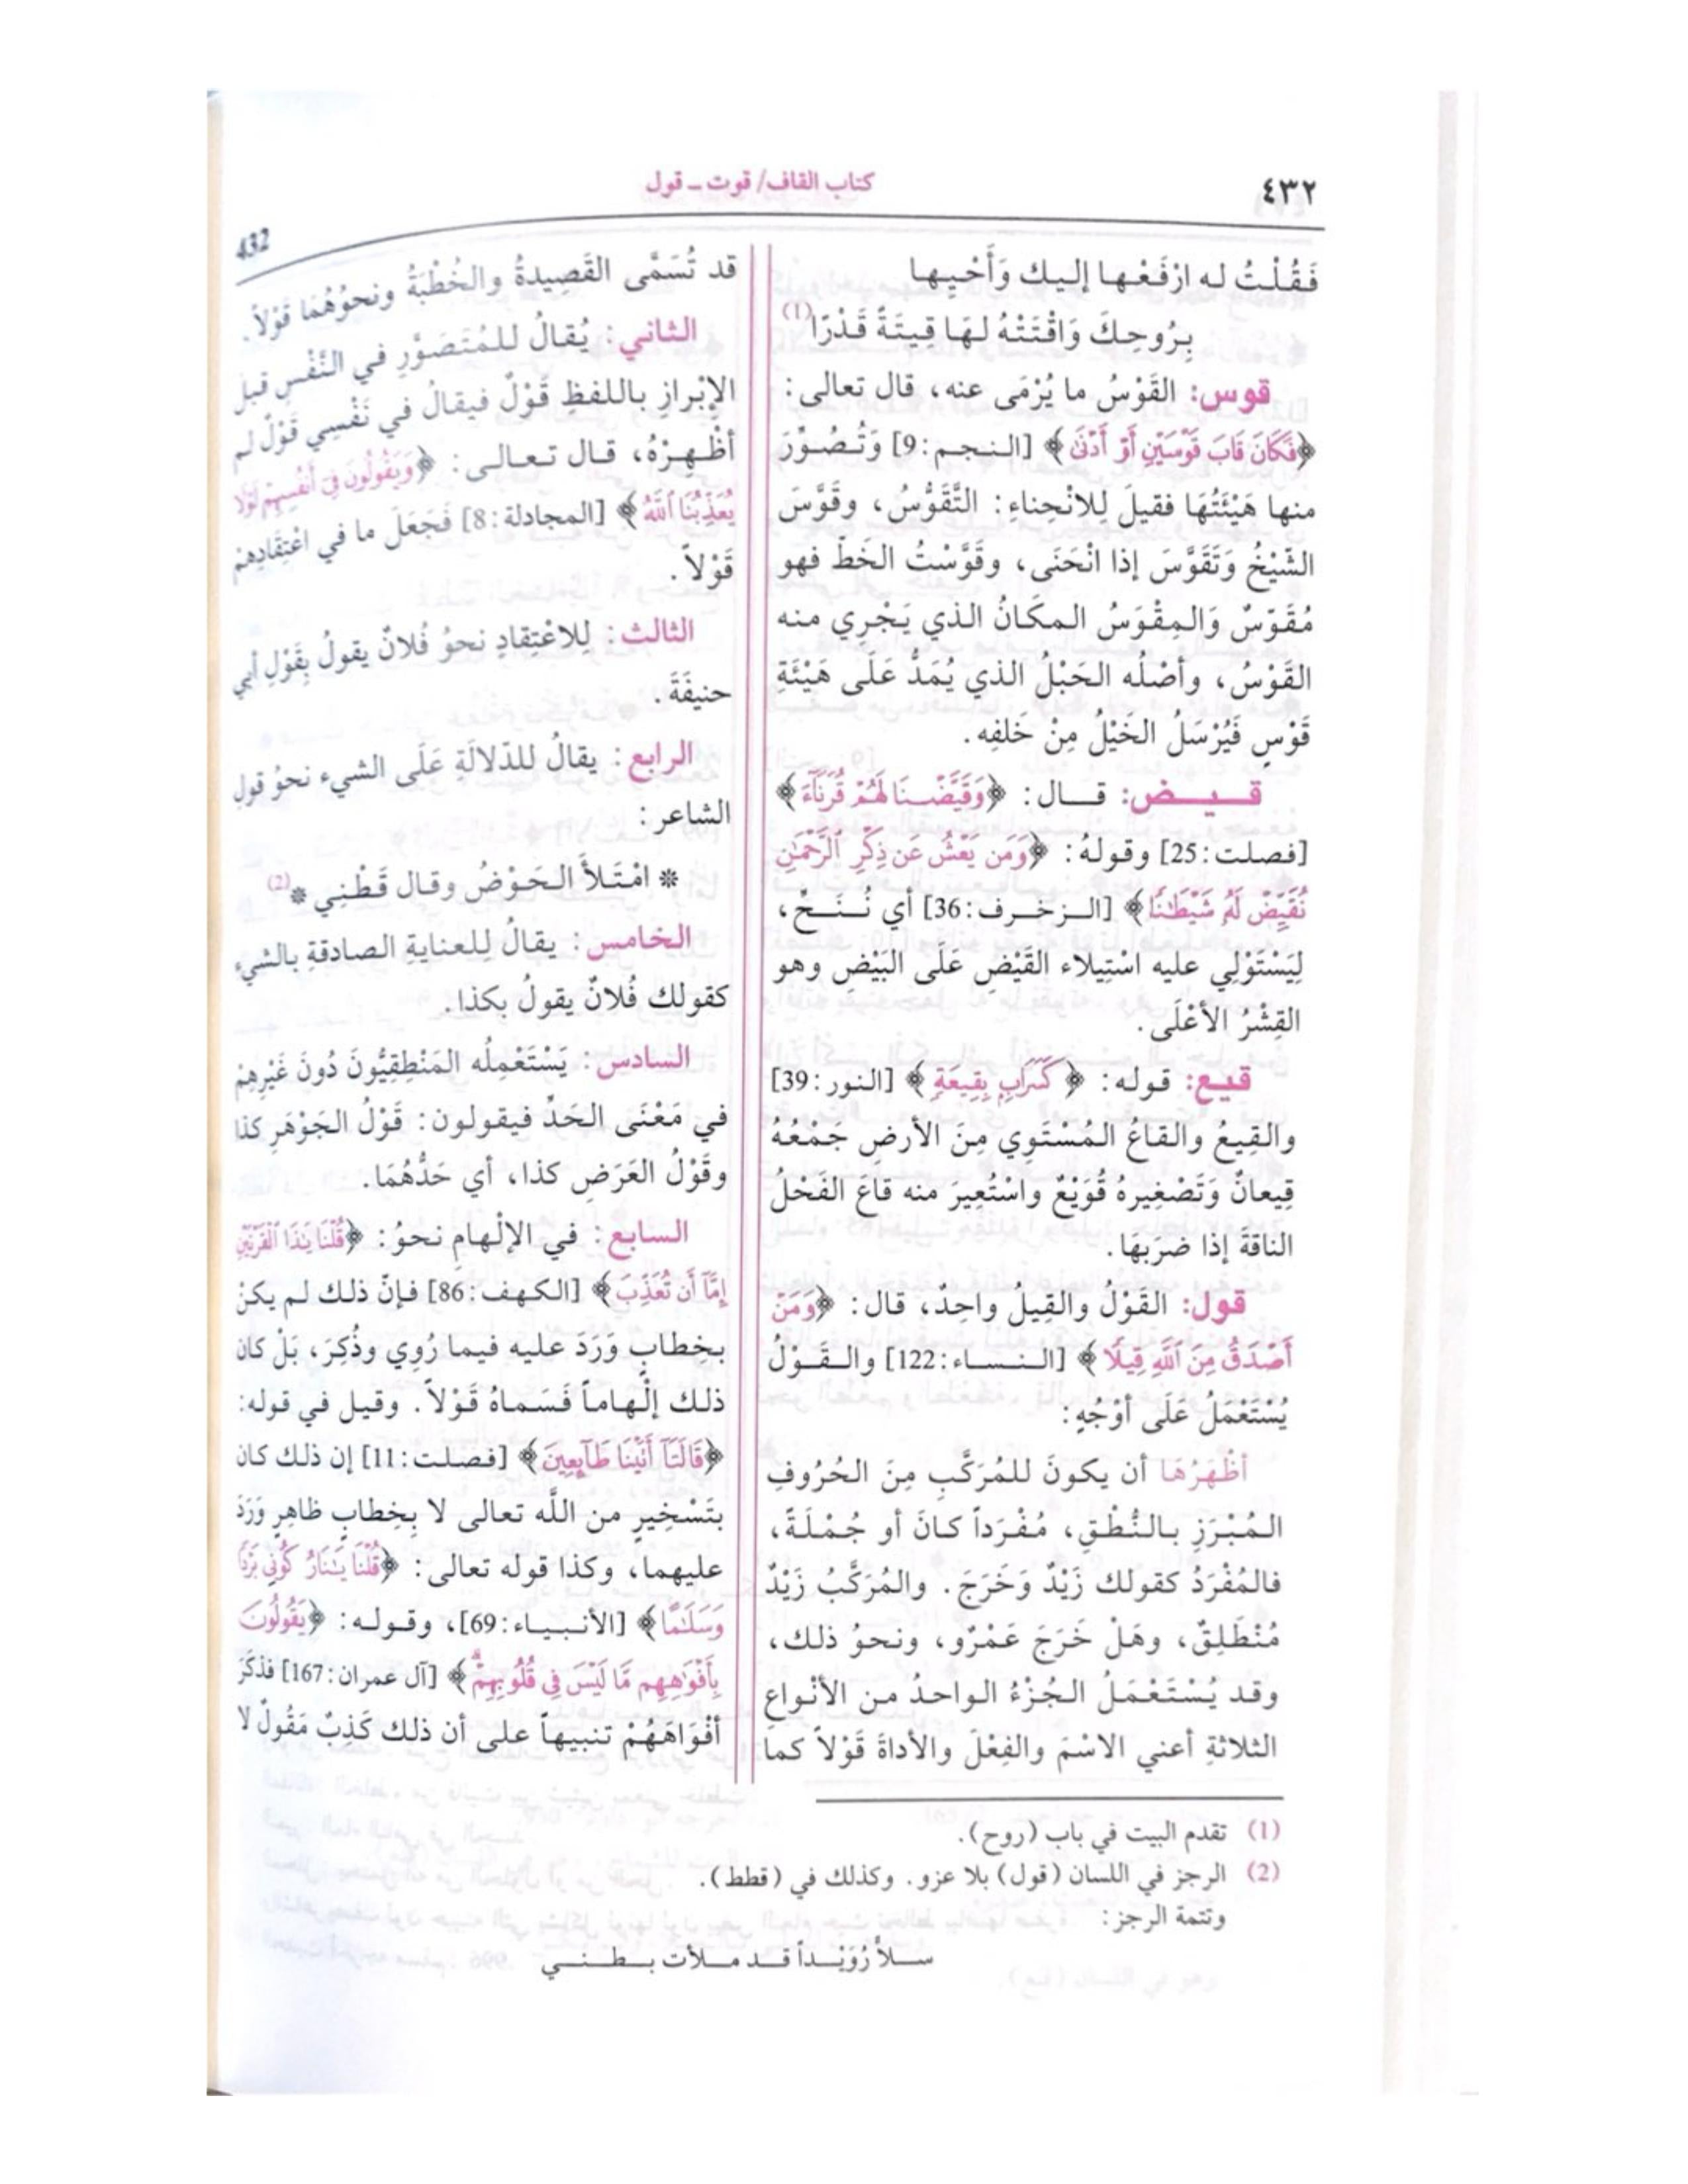 ٤٣٢
كتاب القاف/ قوت ـ قول
432
فَقُلْتُ له ارْفَعْها إليك وَأَحْيِها
بِرُوحِكَ وَاقْتَتْهُ لهَا قِيتَةً قَدْرَا(1)
قوس: القَوْسُ ما يُرْمَى عنه، قال تعالى:
﴿فَكَانَ قَابَ قَوْسَيْنِ أَوْ أَدْنَىٰ﴾ [النجم:9] وَتُصُوِّرَ
منها هَيْئَتُهَا فقيلَ لِلانْحِناءِ: التَّقَوُّسُ، وقَوَّسَ
الشّيْخُ وَتَقَوَّسَ إذا انْحَنَى، وقَوَّسْتُ الخَطّ فهو
مُقَوَّسٌ وَالمِقْوَسُ المكَانُ الذي يَجْرِي منه
القَوْسُ، وأصْلُه الحَبْلُ الذي يُمَدُّ عَلَى هَيْئَةِ
قَوْسٍ فَيُرْسَلُ الخَيْلُ مِنْ خَلفِه.
قـيـض: قـال: ﴿وَقَيَّضْنَا لَهُمْ قُرَنَآءَ﴾
[فصلت:25] وقولهُ: ﴿وَمَن يَعْشُ عَن ذِكْرِ ٱلرَّحْمَٰنِ
نُقَيِّضْ لَهُۥ شَيْطَٰنًا﴾ [الـزخـرف:36] أي نُـنَـحْ،
لِيَسْتَوْلِي عليه اسْتِيلاء القَيْضِ عَلَى البَيْضِ وهو
القِشْرُ الأعْلَى.
قيع: قوله: ﴿كَسَرَابٍۭ بِقِيعَةٍ﴾ [النور:39]
والقِيعُ والقاعُ المُسْتَوِي مِنَ الأرضِ جَمْعُهُ
قِيعانٌ وَتَصْغِيرهُ قُوَيْعٌ واسْتُعِيرَ منه قاعَ الفَحْلُ
الناقةَ إذا ضرَبهَا.
قول: القَوْلُ والقِيلُ واحِدٌ، قال: ﴿وَمَنْ
أَصْدَقُ مِنَ ٱللَّهِ قِيلًا﴾ [الـنـسـاء:122] والـقَـوْلُ
يُسْتَعْمَلُ عَلَى أوْجُهٍ:
أظْهَرُهَا أن يكونَ للمُرَكَّبِ مِنَ الحُرُوفِ
المُبْرَزِ بالنُّطْقِ، مُفْرَداً كانَ أو جُمْلَةً،
فالمُفْرَدُ كقولك زَيْدٌ وَخَرَجَ. والمُرَكَّبُ زَيْدٌ
مُنْطَلِقٌ، وهَلْ خَرَجَ عَمْرٌو، ونحوُ ذلك،
وقد يُسْتَعْمَلُ الجُزْءُ الواحدُ من الأنْواعِ
الثلاثةِ أعني الاسْمَ والفِعْلَ والأداةَ قَوْلاً كما
قد تُسَمَّى القَصِيدةُ والخُطْبَةُ ونحوُهُمَا قَوْلاً.
الثاني: يُقالُ للمُتَصَوَّرِ في النَّفْسِ قبل
الإبْرازِ باللفظِ قَوْلٌ فيقالُ في نَفْسِي قَوْلٌ لم
أظْهِرْهُ، قال تعالى: ﴿وَيَقُولُونَ فِىٓ أَنفُسِهِمْ لَوْلَا
يُعَذِّبُنَا ٱللَّهُ﴾ [المجادلة:8] فَجَعَلَ ما في اعْتِقَادِهِمْ
قَوْلاً.
الثالث: لِلاعْتِقادِ نحوُ فُلانٌ يقولُ بِقَوْلِ أبي
حنيفَةَ.
الرابع: يقالُ للدّلالَةِ عَلَى الشيء نحوُ قولِ
الشاعر:
* امْتَلأَ الحَوْضُ وقال قَطْنِي *(2)
الخامس: يقالُ لِلعنايةِ الصادقةِ بالشيءِ
كقولك فُلانٌ يقولُ بكذا.
السادس: يَسْتَعْمِلُه المَنْطِقِيُّونَ دُونَ غَيْرِهِمْ
في مَعْنَى الحَدِّ فيقولون: قَوْلُ الجَوْهَرِ كذا
وقَوْلُ العَرَضِ كذا، أي حَدُّهُمَا.
السابع: في الإلْهامِ نحوُ: ﴿قُلْنَا يَٰذَا ٱلْقَرْنَيْنِ
إِمَّآ أَن تُعَذِّبَ﴾ [الكهف:86] فإنّ ذلك لم يكنْ
بخِطابٍ وَرَدَ عليه فيما رُوِي وذُكِرَ، بَلْ كان
ذلك إلْهاماً فَسَماهُ قَوْلاً. وقيل في قوله:
﴿قَالَتَآ أَتَيْنَا طَآئِعِينَ﴾ [فصلت:11] إن ذلك كان
بتَسْخِيرٍ من اللَّه تعالى لا بِخِطابٍ ظاهِرٍ وَرَدَ
عليهما، وكذا قوله تعالى: ﴿قُلْنَا يَٰنَارُ كُونِى بَرْدًا
وَسَلَٰمًا﴾ [الأنبياء:69]، وقوله: ﴿يَقُولُونَ
بِأَفْوَٰهِهِم مَّا لَيْسَ فِى قُلُوبِهِمْ﴾ [آل عمران:167] فذكَرَ
أفْوَاهَهُمْ تنبيهاً على أن ذلك كَذِبٌ مَقُولٌ لا
(1) تقدم البيت في باب (روح).
(2) الرجز في اللسان (قول) بلا عزو. وكذلك في (قطط).
وتتمة الرجز:
سـلأ رُوَيْـداً قـد مـلأت بـطـنـي